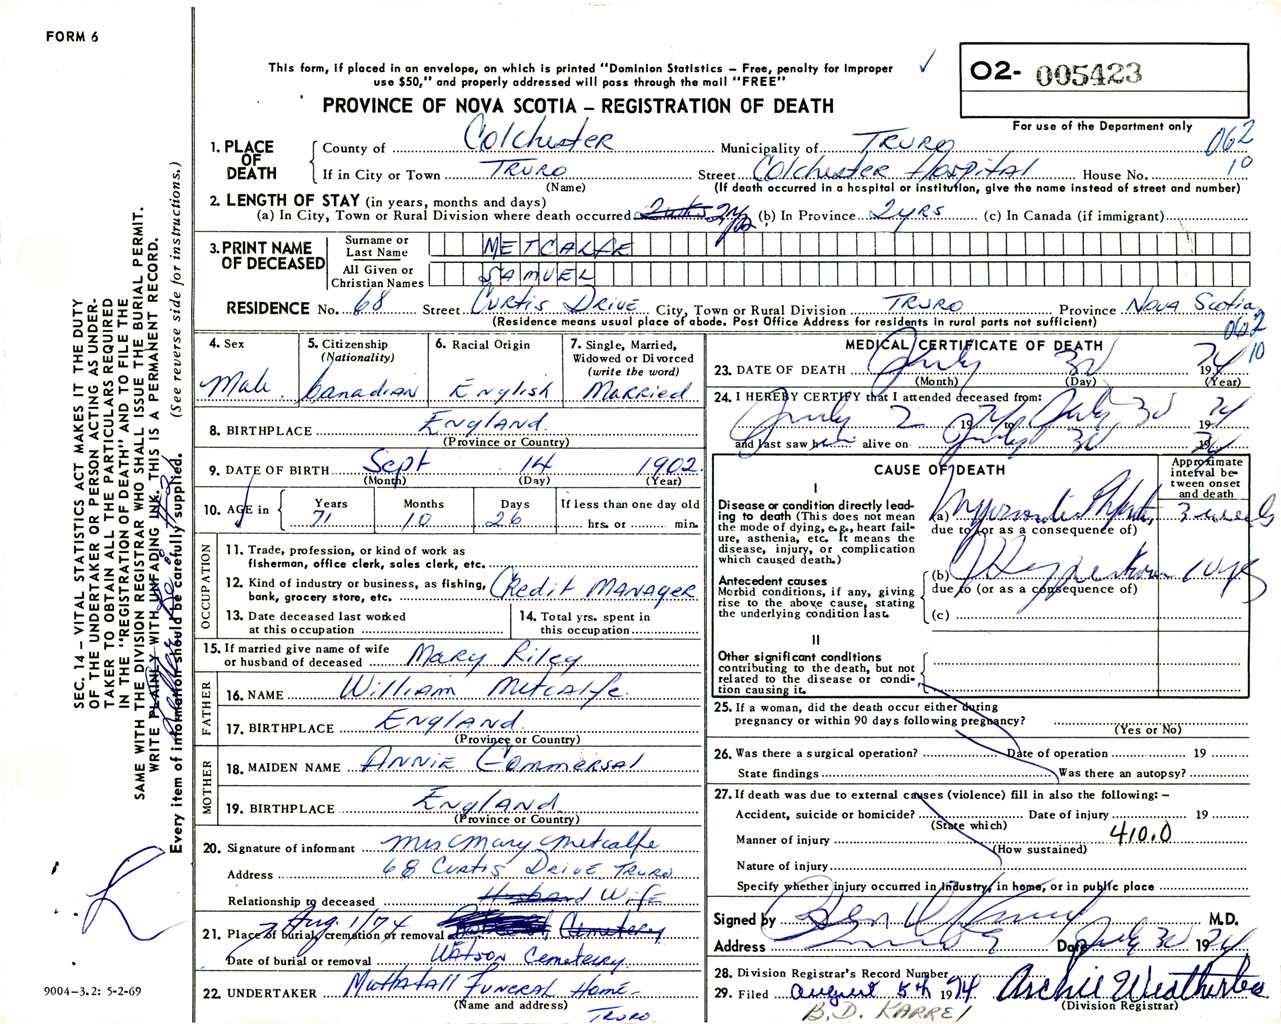 FORM 6
This form, if placed in an envelope, on which is printed "Dominion Statistics – Free, penalty for improper
use $50," and properly addressed will pass through the mail "FREE"
O2- 005423
PROVINCE OF NOVA SCOTIA – REGISTRATION OF DEATH
For use of the Department only
1. PLACE OF DEATH
County of Colchester Municipality of TRURO 062
If in City or Town TRURO Street Colchester Hospital House No. 10
(Name) (If death occurred in a hospital or institution, give the name instead of street and number)
2. LENGTH OF STAY (in years, months and days)
(a) In City, Town or Rural Division where death occurred 2 yrs. (b) In Province 2 yrs (c) In Canada (if immigrant)
3. PRINT NAME OF DECEASED
Surname or Last Name METCALFE
All Given or Christian Names SAMUEL
RESIDENCE No. 68 Street Curtis Drive City, Town or Rural Division TRURO Province Nova Scotia
(Residence means usual place of abode. Post Office Address for residents in rural parts not sufficient) 062
10
4. Sex
Male
5. Citizenship
(Nationality)
Canadian
6. Racial Origin
English
7. Single, Married,
Widowed or Divorced
(write the word)
Married
8. BIRTHPLACE England
(Province or Country)
9. DATE OF BIRTH Sept 14 1902
(Month) (Day) (Year)
10. AGE in
Years Months Days If less than one day old
71 10 26 hrs. or min.
OCCUPATION
11. Trade, profession, or kind of work as
fisherman, office clerk, sales clerk, etc.
12. Kind of industry or business, as fishing,
bank, grocery store, etc. Credit MANAGER
13. Date deceased last worked
at this occupation
14. Total yrs. spent in
this occupation
15. If married give name of wife
or husband of deceased Mary Riley
FATHER
16. NAME William Metcalfe
17. BIRTHPLACE England
(Province or Country)
MOTHER
18. MAIDEN NAME ANNIE Gommersal
19. BIRTHPLACE England
(Province or Country)
20. Signature of informant Mrs Mary Metcalfe
Address 68 Curtis Drive Truro
Relationship to deceased Husband Wife
Aug 1/74
21. Place of burial, cremation or removal Cemetery
Date of burial or removal WATSON Cemetery
22. UNDERTAKER Mattatall Funeral Home –
(Name and address) TRURO
MEDICAL CERTIFICATE OF DEATH
23. DATE OF DEATH July 3d 1974
(Month) (Day) (Year)
24. I HEREBY CERTIFY that I attended deceased from:
July 2 1974 to July 3d 1974
and last saw him alive on July 3d 1974
CAUSE OF DEATH
Approximate
interval be-
tween onset
and death
I
Disease or condition directly lead-
ing to death (This does not mean
the mode of dying, e.g., heart fail-
ure, asthenia, etc. It means the
disease, injury, or complication
which caused death.)
(a) 3 weeks
due to (or as a consequence of)
Antecedent causes
Morbid conditions, if any, giving
rise to the above cause, stating
the underlying condition last.
(b) Hypertension 10 yrs
due to (or as a consequence of)
(c)
II
Other significant conditions
contributing to the death, but not
related to the disease or condi-
tion causing it.
25. If a woman, did the death occur either during
pregnancy or within 90 days following pregnancy?
(Yes or No)
26. Was there a surgical operation? Date of operation 19
State findings Was there an autopsy?
27. If death was due to external causes (violence) fill in also the following: –
Accident, suicide or homicide? Date of injury 19
(State which)
Manner of injury 410.0
(How sustained)
Nature of injury
Specify whether injury occurred in industry, in home, or in public place
Signed by M.D.
Address Date July 3d 1974
28. Division Registrar's Record Number
29. Filed August 5th 1974 Archie Weatherbee
(Division Registrar)
B. D. KARREL
SEC. 14 – VITAL STATISTICS ACT MAKES IT THE DUTY
OF THE UNDERTAKER OR PERSON ACTING AS UNDER-
TAKER TO OBTAIN ALL THE PARTICULARS REQUIRED
IN THE "REGISTRATION OF DEATH" AND TO FILE THE
SAME WITH THE DIVISION REGISTRAR WHO SHALL ISSUE THE BURIAL PERMIT.
WRITE PLAINLY WITH UNFADING INK. THIS IS A PERMANENT RECORD.
Every item of information should be carefully supplied. (See reverse side for instructions.)
9004-3.2: 5-2-69